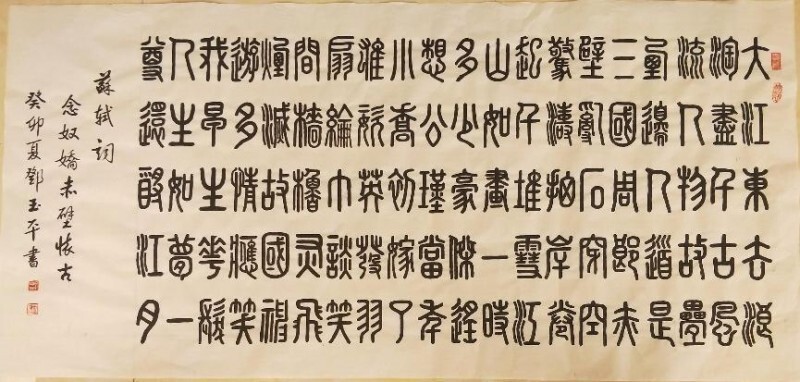 大江東去浪
淘盡千古風
流人物故壘
西邊人道是
三國周郎赤
壁亂石穿空
驚濤拍岸卷
起千堆雪江
山如畫一時
多少豪傑遙
想公瑾當年
小喬初嫁了
雄姿英發羽
扇綸巾談笑
間檣櫓灰飛
煙滅故國神
遊多情應笑
我早生華髮
人生如夢一
尊還酹江月
蘇軾詞
念奴嬌赤壁懷古
癸卯夏鄧玉平書